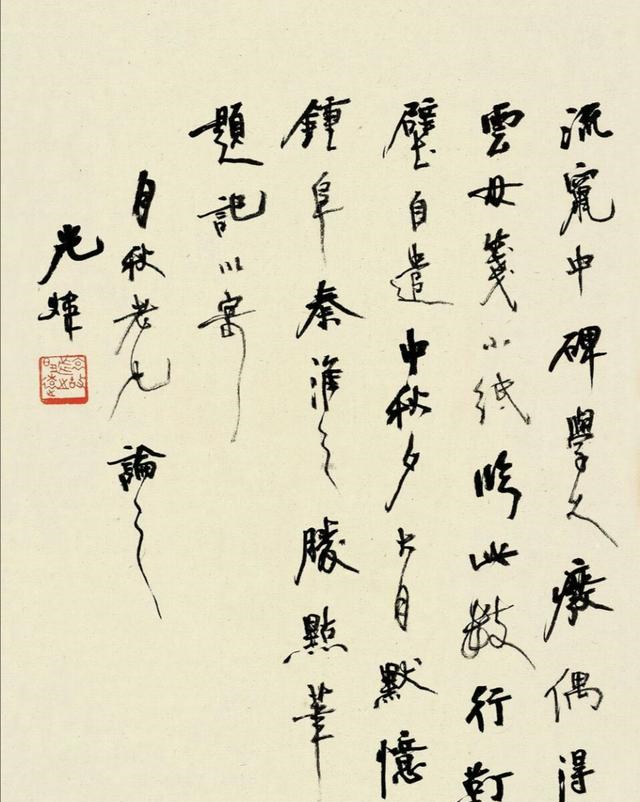 流竄中碑學久廢偶得
雲母箋小紙臨此數行釘
壁自遣中秋夕月默憶
鍾阜秦淮之勝點筆
題記以寄
月秋老兄論之
光煒